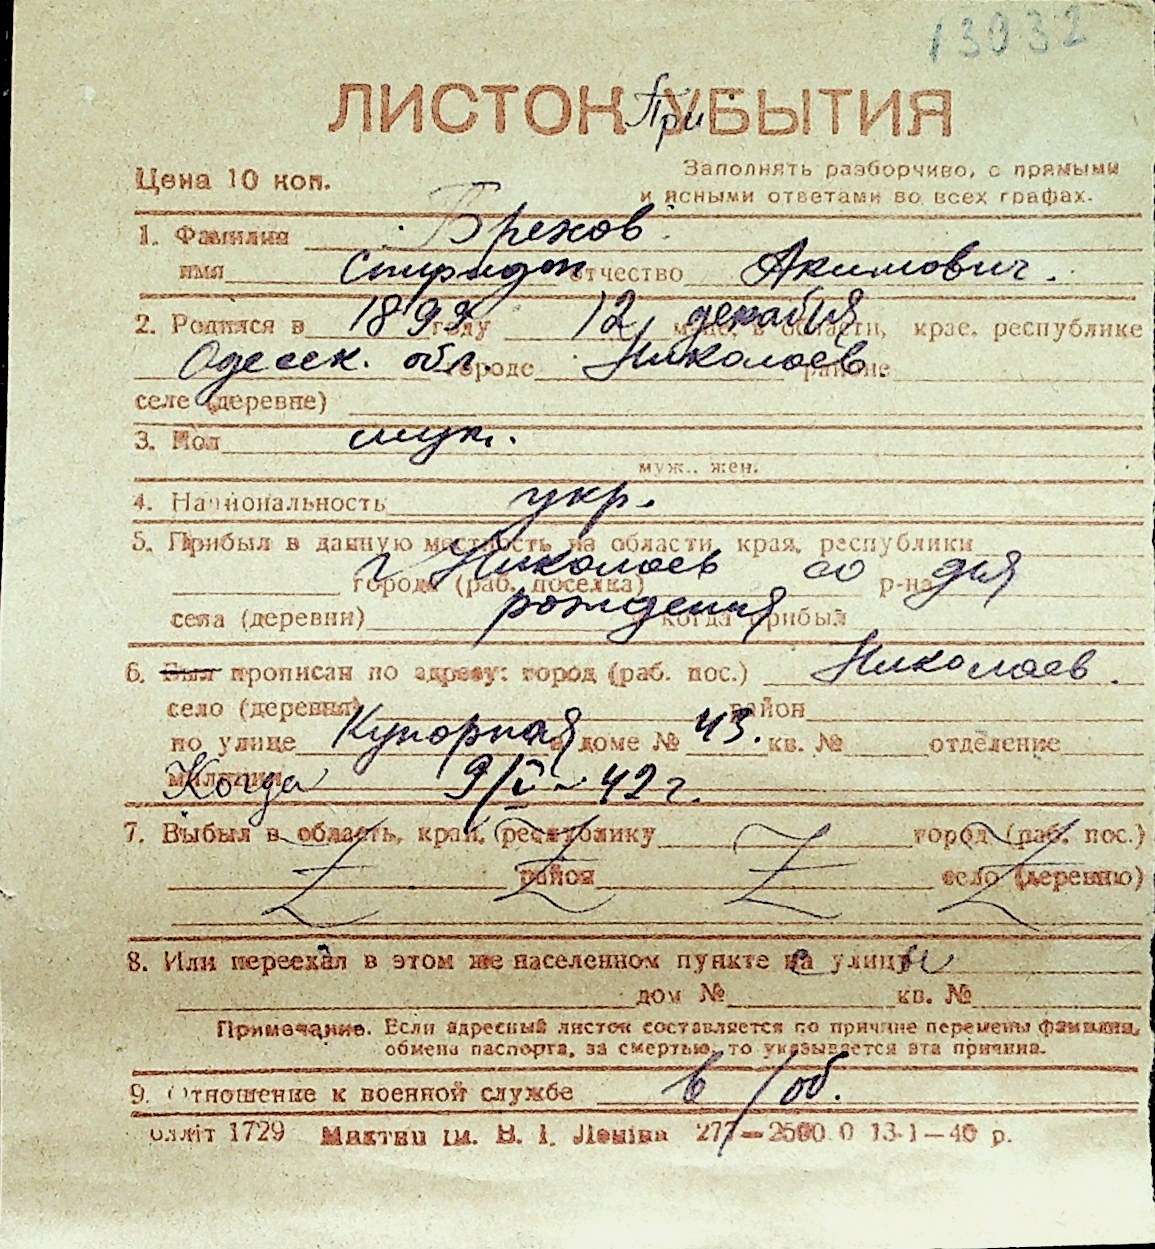 13932
ЛИСТОК При УБЫТИЯ
Цена 10 коп.
Заполнять разборчиво, с прямыми
и ясными ответами во всех графах.
1. Фамилия Брехов
имя Спиридон отчество Акимович.
2. Родился в 1899 году 12 декабря м-це, в области, крае, республике
Одесск. обл. городе Николаев районе
селе (деревне)
3. Пол муж.
муж., жен.
4. Национальность укр.
5. Прибыл в данную местность из области, края, республики
г Николаев со дня
города (раб. поселка) р-на
рождения
села (деревни) и когда прибыл
6. Был прописан по адресу: город (раб. пос.) Николаев.
село (деревня) район
по улице Купорная в доме № 43. кв. № отделение
милиции Когда 9/V-42 г.
7. Выбыл в область, край, республику город (раб. пос.)
район село (деревню)
8. Или переехал в этом же населенном пункте на улицу
дом № кв. №
Примечание. Если адресный листок составляется по причине перемены фамилии,
обмена паспорта, за смертью, то указывается эта причина.
9. Отношение к военной службе в/об.
олліт 1729 ім. В. І. Леніна 277—2500.0 13-1—40 р.